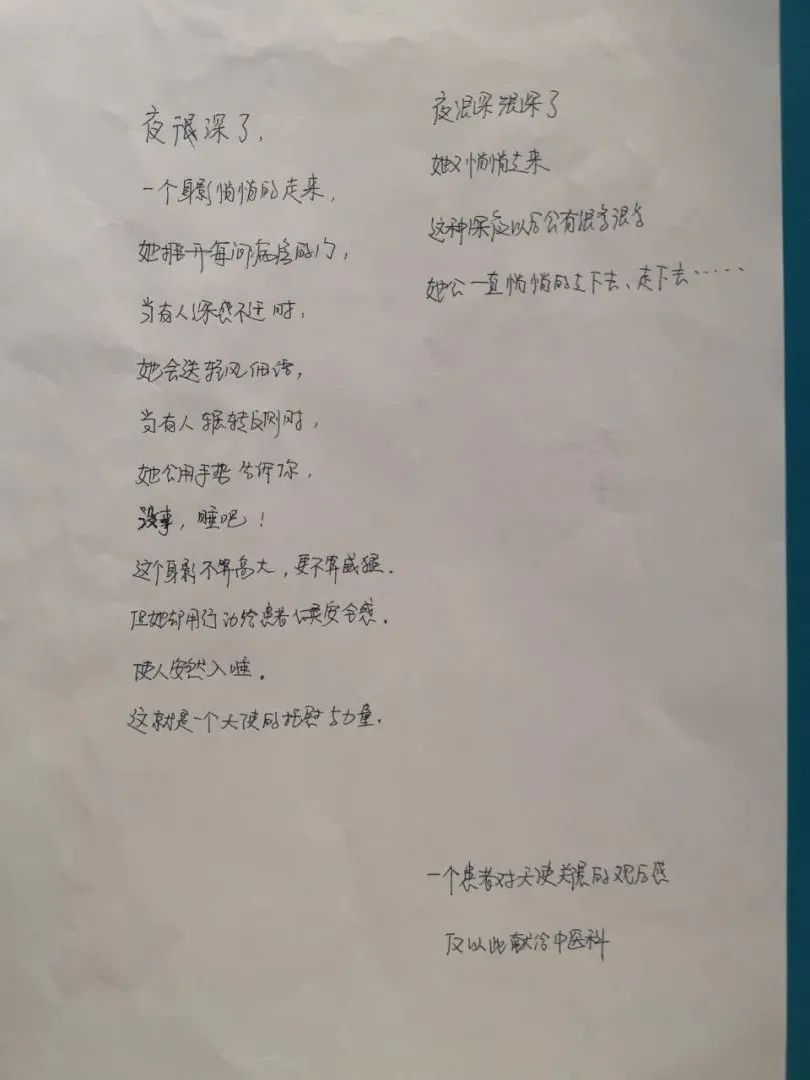 夜很深了，
一个身影悄悄的走来，
她推开每间病房的门，
当有人深感不适时，
她会送轻风细语，
当有人辗转反侧时，
她会用手势告诉你，
没事，睡吧！
这个身影不算高大，更不算威猛.
但她却用行动给患者以安全感.
使人安然入睡.
这就是一个天使的抚慰与力量.
夜很深很深了
她又悄悄走来
这种深夜以后会有很多很多
她会一直悄悄的走下去、走下去……
一个患者对天使关爱的观后感
仅以此献给中医科